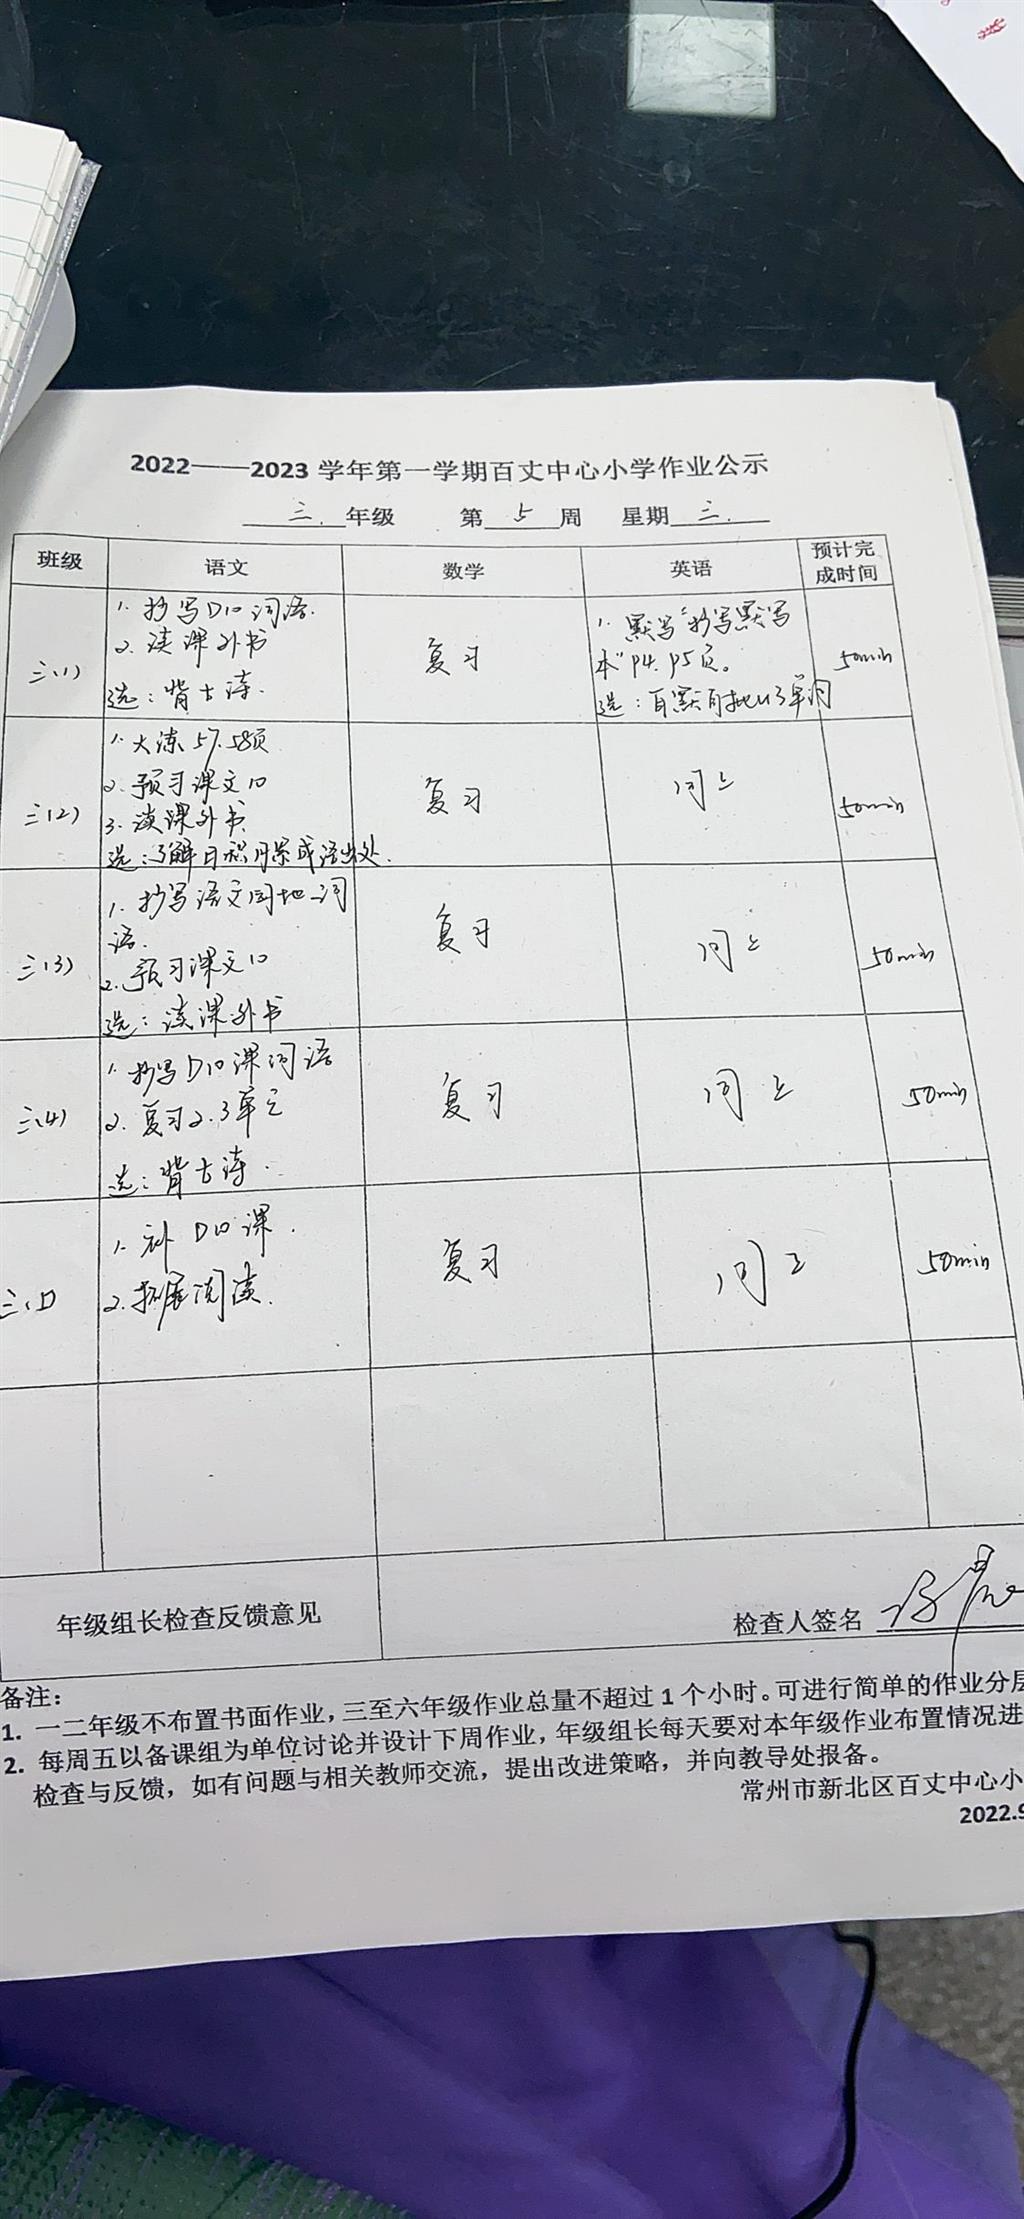 2022——2023 学年第一学期百丈中心小学作业公示
三. 年级 第 5 周 星期 三.
班级 语文 数学 英语 预计完
成时间
三(1)
1. 抄写D10词语.
2. 读课外书
选：背古诗.
复习
1. 默写“抄写默写
本”P4.P5页。
选：自默自批U3单词
50min
三(2)
1. 大练57.58页
2. 预习课文10
3. 读课外书.
选：了解日积月累成语出处.
复习
同上
50min
三(3)
1. 抄写语文园地二词
语.
2. 预习课文10
选：读课外书
复习
同上
50min
三(4)
1. 抄写D10课词语
2. 复习2.3单元
选：背古诗.
复习
同上
50min
1. 补D10课.
2. 拓展阅读.
复习
同上
50min
年级组长检查反馈意见
检查人签名
备注：
1. 一二年级不布置书面作业，三至六年级作业总量不超过 1 个小时。可进行简单的作业分层
2. 每周五以备课组为单位讨论并设计下周作业，年级组长每天要对本年级作业布置情况进
检查与反馈，如有问题与相关教师交流，提出改进策略，并向教导处报备。
常州市新北区百丈中心小
2022.9